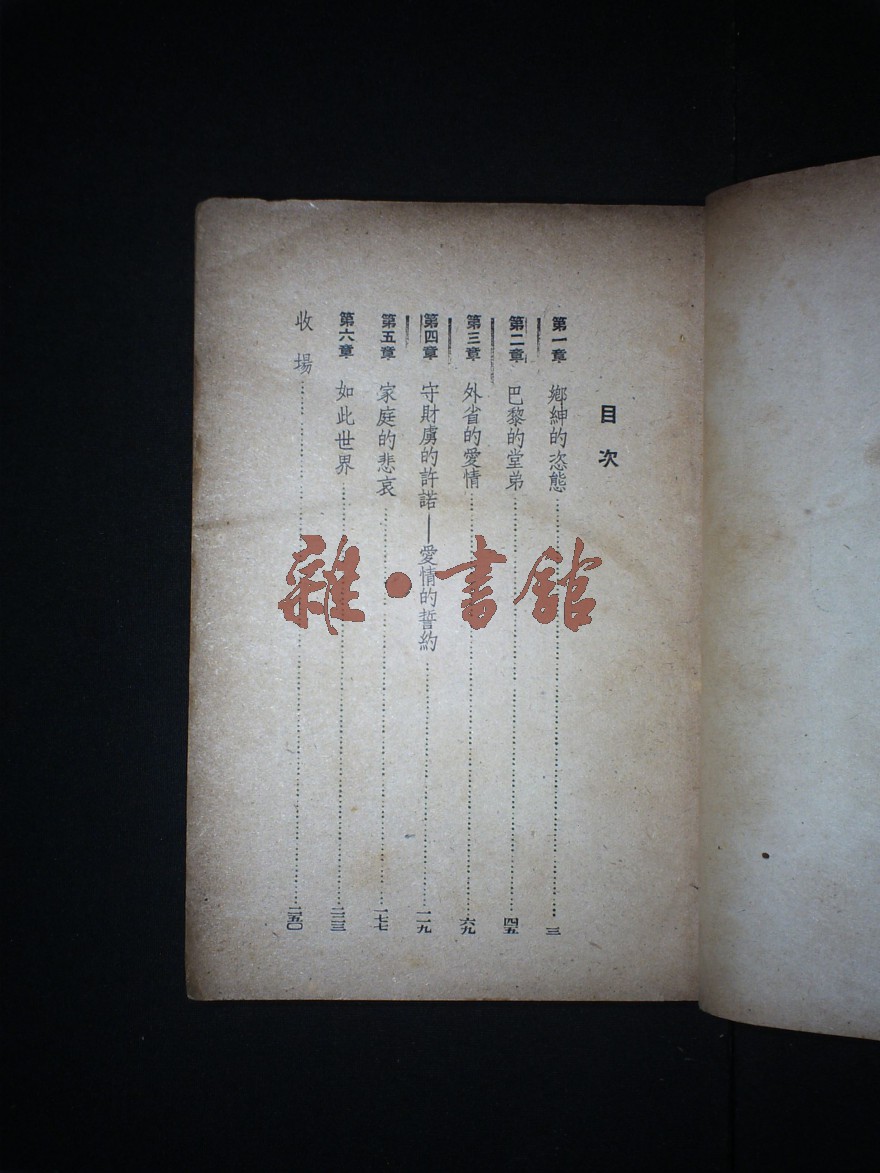 目次
第一章　鄉紳的恣態………三
第二章　巴黎的堂弟………四五
第三章　外省的愛情………六九
第四章　守財虜的許諾——愛情的誓約………一一九
第五章　家庭的悲哀………一七七
第六章　如此世界………二二三
收場………二五〇
雜·書館